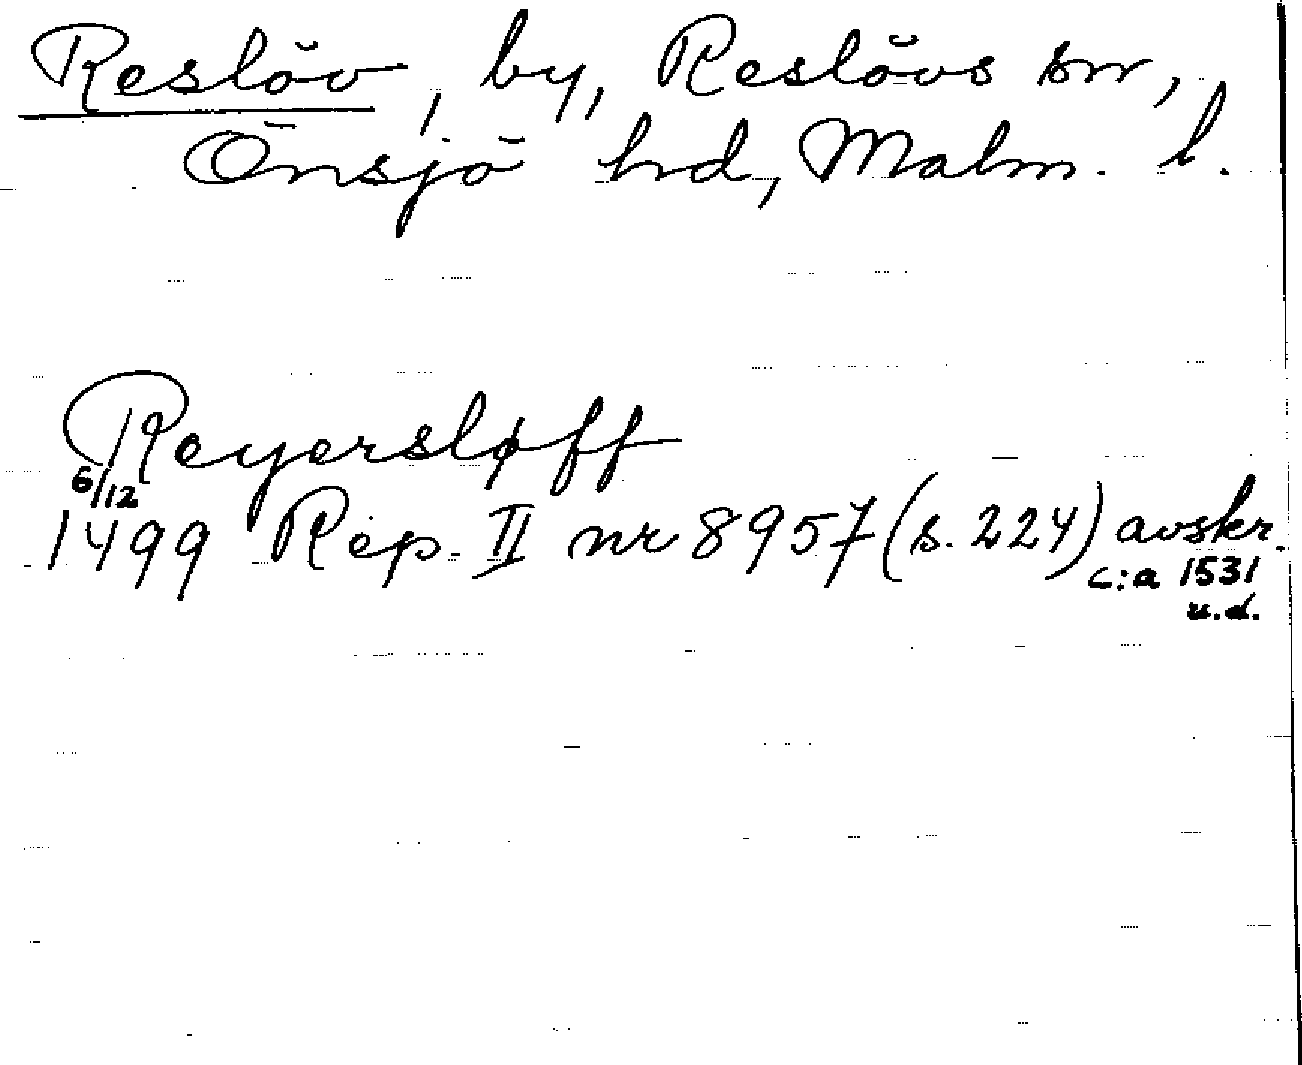 Reslöv, by, Reslövs sn,
Önsjö hd, Malm. l.
Reyersløff
6/12
1499 Rep. II nr 8957 (s. 224) avskr.
c:a 1531
u.d.